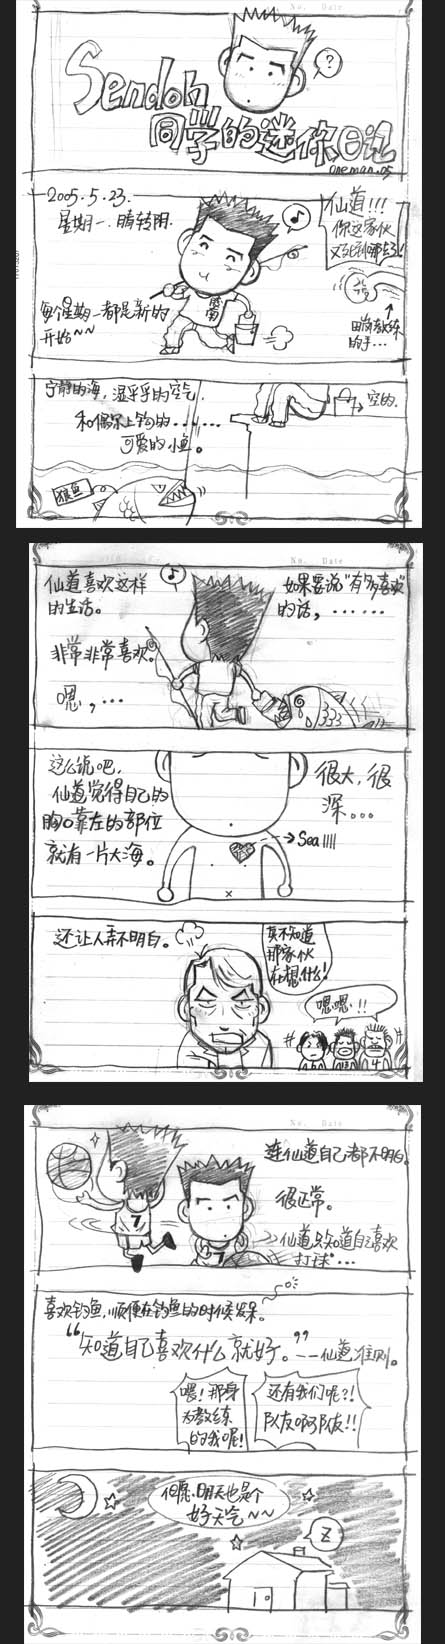 No. Date
Sendoh
同学的迷你日记
oneman.05
2005.5.23.
星期一.晴转阴.
仙道!!!
你这家伙
又跑到哪去了!
每个星期一都是新的
开始~~
田岗教练
的手...
宁静的海,湿乎乎的空气.
和偶尔上钩的......
可爱的小鱼。
空的.
狼鱼
No. Date
仙道喜欢这样
的生活。
非常非常喜欢。
嗯,...
如果要说"有多喜欢"
的话,......
这么说吧,
仙道觉得自己的
胸口靠左的部位
就有一片大海。
很大,很
深...
Sea!!!!
还让人弄不明白。
真不知道
那家伙
在想什么!
嗯嗯!!
4
No. Date
连仙道自己都不明白.
很正常。
仙道只知道自己喜欢
打球...
7
7
喜欢钓鱼,顺便在钓鱼的时候发呆。
"知道自己喜欢什么就好。"--仙道准则。
喂!那身
为教练
的我呢!
还有我们呢?!
队友啊队友!!
但愿明天也是个
好天气~~
Z